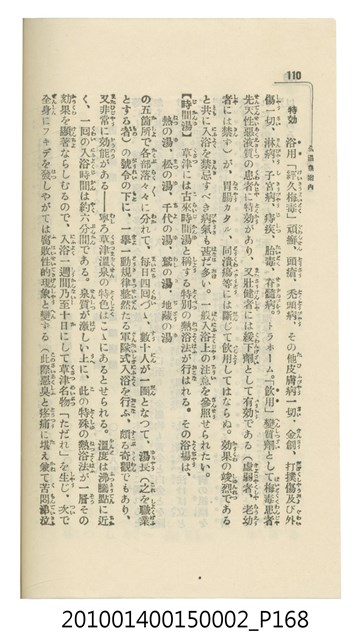 110
温泉案内
特効　浴用「經久梅毒、頑癬、頭瘡、禿頭病、その他皮膚病一切、金創、打撲傷及び外
傷一切、淋病、子宮病、痔疾、胎毒、脊髓病、トラホーム」「飲用」變質劑として梅毒患者
先天性惡液質の患者に特効があり、又壯健者には緩下劑として有効である（虚弱者、老幼
者には禁ず）が、胃腸カタル、同潰瘍等には斷じて飲用してはならぬ。効果の竣烈である
と共に入浴を禁忌すべき病氣も亦だ多い。一般入浴上の注意を參照せられたい。
【時間湯】　草津には古來時間湯と稱する特別の熱浴法が行はれる。その浴場は、
熱の湯、松の湯、千代の湯、鷲の湯、地藏の湯
の五箇所で各部落々々に分れて、毎日四回づゝ、數十人が一團となつて、湯長（之を職業
とする者）の號令の下に、一擧一動規律整然たる軍隊式入浴を行ふ、頗る奇觀でもあり、
又非常に効能がある――寧ろ草津温泉の特色はこゝにあるとせられる。温度は沸騰點に近
く、一回の入浴時間は約六分間である。泉質が激しい上に、此の特殊の熱浴法が一層その
効果を顯著ならしむるので、入浴一週間乃至十日にして草津名物「たゞれ」を生じ、次で
全身にフキデを發しやがては腐敗性的現象と變する（此際惡臭と疼痛に堪え兼て苦悶涕泣
201001400150002_P168